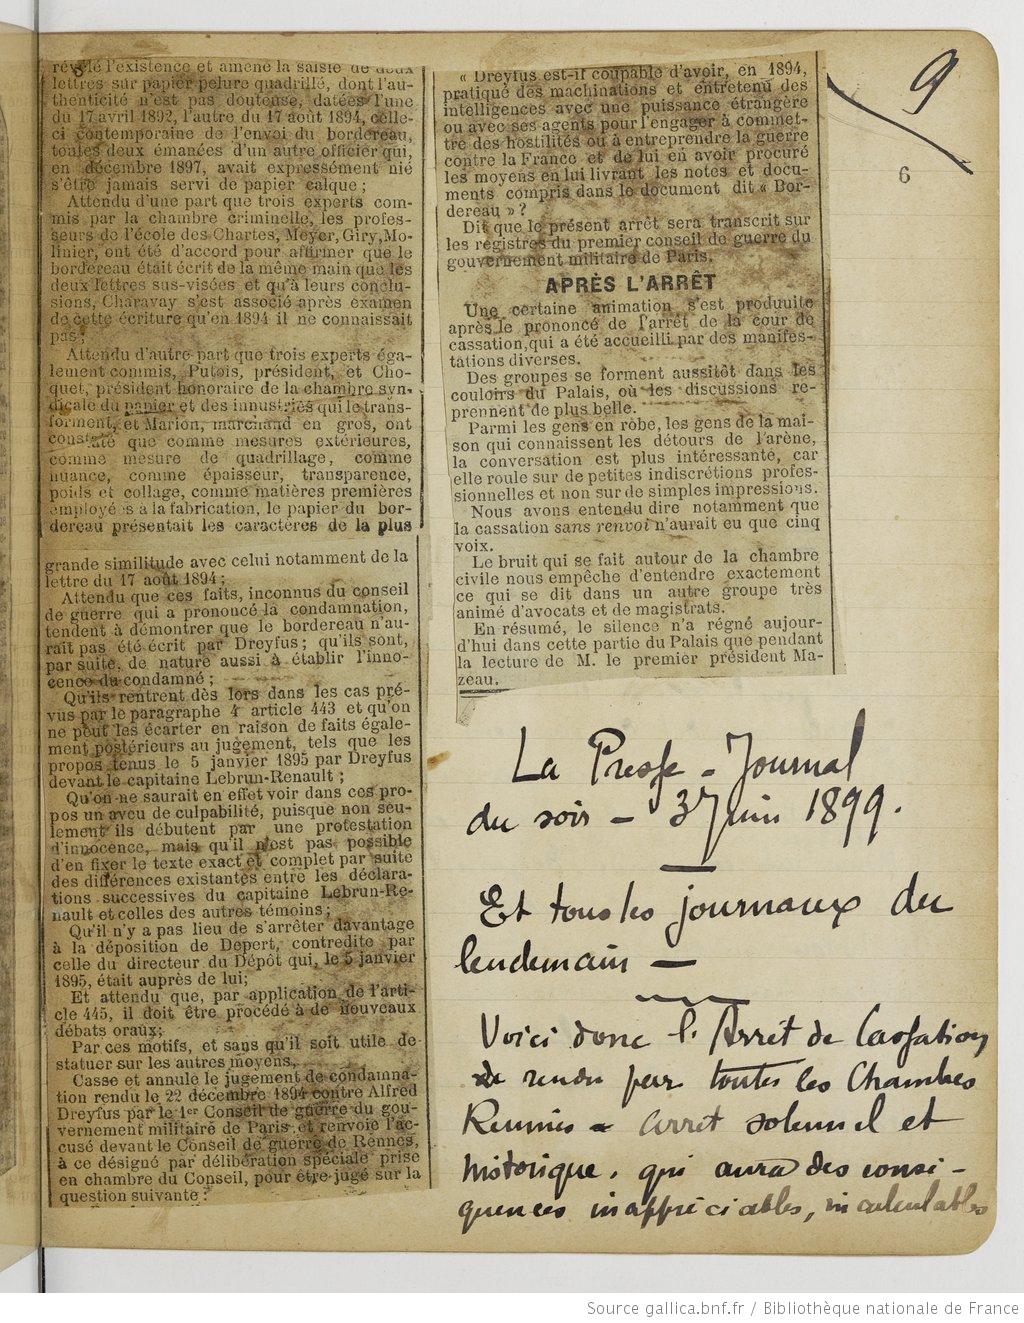 révélé l'existence et amené la saisie de deux
lettres sur papier pelure quadrillé, dont l'au-
thenticité n'est pas douteuse, datées l'une
du 17 avril 1892, l'autre du 17 août 1894, celle-
ci contemporaine de l'envoi du bordereau,
toutes deux émanées d'un autre officier qui,
en décembre 1897, avait expressément nié
s'être jamais servi de papier calque ;
Attendu d'une part que trois experts com-
mis par la chambre criminelle, les profes-
seurs de l'école des Chartes, Meyer, Giry, Mo-
linier, ont été d'accord pour affirmer que le
bordereau était écrit de la même main que les
deux lettres sus-visées et qu'à leurs conclu-
sions, Charavay s'est associé après examen
de cette écriture qu'en 1894 il ne connaissait
pas ;
Attendu d'autre part que trois experts éga-
lement commis, Putois, président, et Cho-
quet, président honoraire de la chambre syn-
dicale du papier et des innustriés qui le trans-
forment, et Marion, marchand en gros, ont
constaté que comme mesures extérieures,
comme mesure de quadrillage, comme
nuance, comme épaisseur, transparence,
poids et collage, comme matières premières
employées à la fabrication, le papier du bor-
dereau présentait les caractères de la plus
grande similitude avec celui notamment de la
lettre du 17 août 1894 ;
Attendu que ces faits, inconnus du conseil
de guerre qui a prononcé la condamnation,
tendent à démontrer que le bordereau n'au-
rait pas été écrit par Dreyfus ; qu'ils sont,
par suite, de nature aussi à établir l'inno-
cence du condamné ;
Qu'ils rentrent dès lors dans les cas pré-
vus par le paragraphe 4 article 443 et qu'on
ne peut les écarter en raison de faits égale-
ment postérieurs au jugement, tels que les
propos tenus le 5 janvier 1895 par Dreyfus
devant le capitaine Lebrun-Renault ;
Qu'on ne saurait en effet voir dans ces pro-
pos un aveu de culpabilité, puisque non seu-
lement ils débutent par une protestation
d'innocence, mais qu'il n'est pas possible
d'en fixer le texte exact et complet par suite
des différences existantes entre les déclara-
tions successives du capitaine Lebrun-Re-
nault et celles des autres témoins ;
Qu'il n'y a pas lieu de s'arrêter davantage
à la déposition de Depert, contredite par
celle du directeur du Dépôt qui, le 5 janvier
1895, était auprès de lui;
Et attendu que, par application de l'arti-
cle 445, il doit être procédé à de nouveaux
débats oraux;
Par ces motifs, et sans qu'il soit utile de
statuer sur les autres moyens,
Casse et annule le jugement de condamna-
tion rendu le 22 décembre 1894 contre Alfred
Dreyfus par le 1er Conseil de guerre du gou-
vernement militaire de Paris et renvoie l'ac-
cusé devant le Conseil de guerre de Rennes,
à ce désigné par délibération spéciale prise
en chambre du Conseil, pour être jugé sur la
question suivante :
« Dreyfus est-il coupable d'avoir, en 1894,
pratiqué des machinations et entretenu des
intelligences avec une puissance étrangère
ou avec ses agents pour l'engager à commet-
tre des hostilités ou à entreprendre la guerre
contre la France et de lui en avoir procuré
les moyens en lui livrant les notes et docu-
ments compris dans le document dit « Bor-
dereau » ?
Dit que le présent arrêt sera transcrit sur
les registres du premier conseil de guerre du
gouvernement militaire de Paris.
APRÈS L'ARRÊT
Une certaine animation s'est produite
après le prononcé de l'arrêt de la cour de
cassation, qui a été accueilli par des manifes-
tations diverses.
Des groupes se forment aussitôt dans les
couloirs du Palais, où les discussions re-
prennent de plus belle.
Parmi les gens en robe, les gens de la mai-
son qui connaissent les détours de l'arène,
la conversation est plus intéressante, car
elle roule sur de petites indiscrétions profes-
sionnelles et non sur de simples impressions.
Nous avons entendu dire notamment que
la cassation sans renvoi n'aurait eu que cinq
voix.
Le bruit qui se fait autour de la chambre
civile nous empêche d'entendre exactement
ce qui se dit dans un autre groupe très
animé d'avocats et de magistrats.
En résumé, le silence n'a régné aujour-
d'hui dans cette partie du Palais que pendant
la lecture de M. le premier président Ma-
zeau.
9
6
La Presse - Journal
du soir - 3 Juin 1899.
Et tous les journaux du
lendemain -
Voici donc l'Arrêt de Cassation
rendu par toutes les Chambres
Réunies - arrêt solennel et
historique, qui aura des consé-
quences inappréciables, incalculables
Source gallica.bnf.fr / Bibliothèque nationale de France